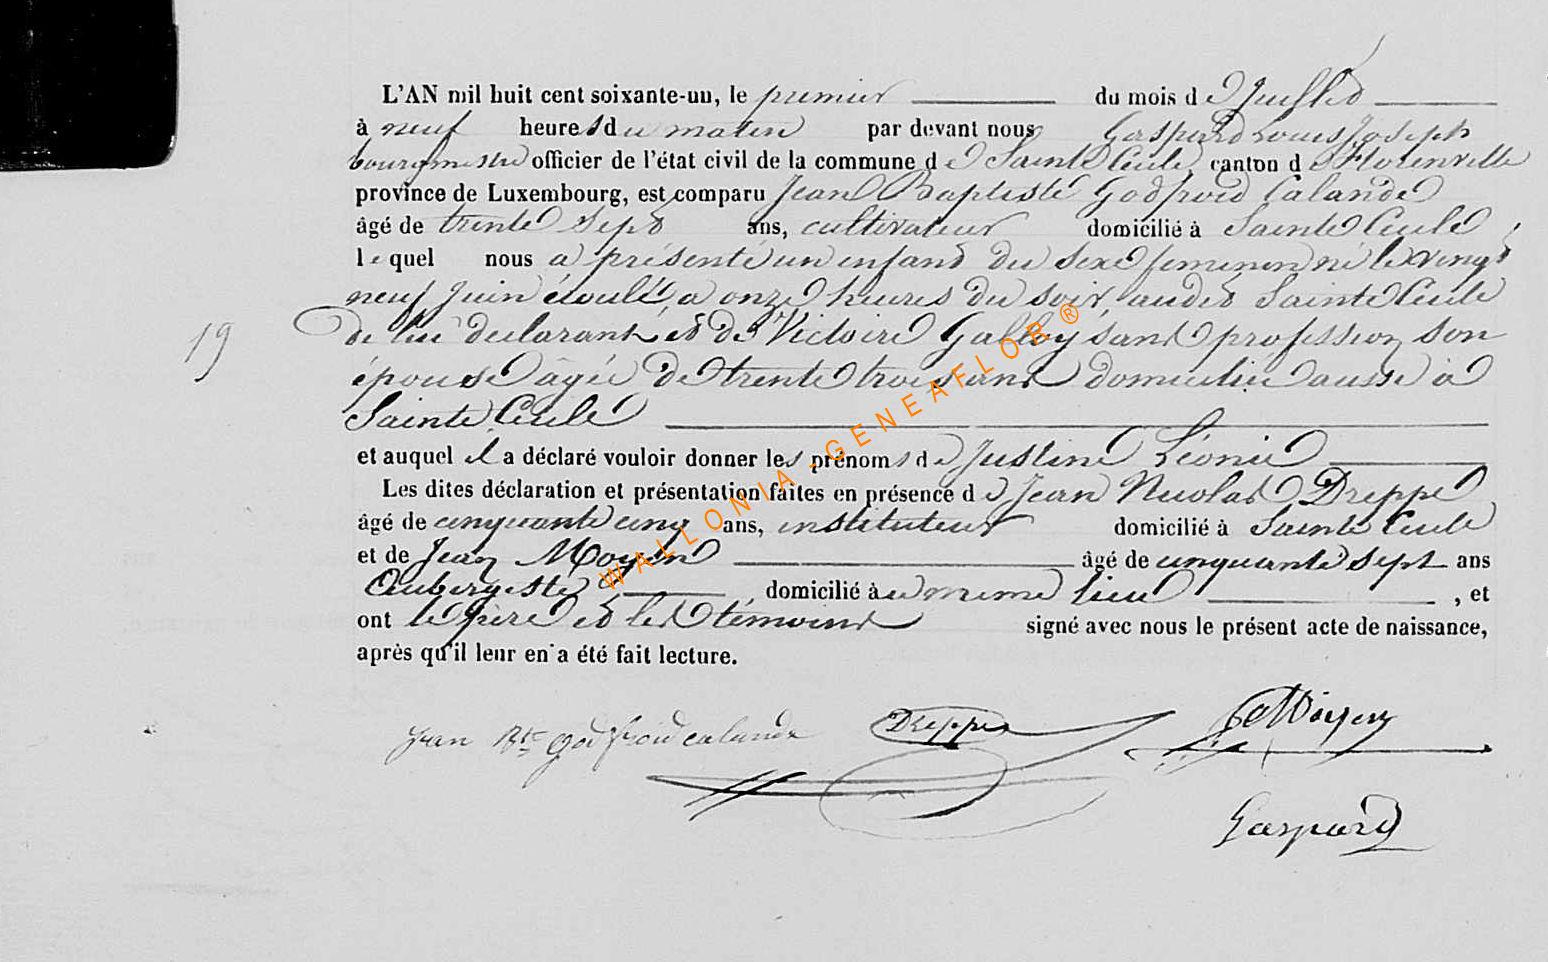 L'AN mil huit cent soixante-un, le premier du mois de Juillet
à neuf heures du matin par devant nous Gaspard Louis Joseph
bourgmestre officier de l'état civil de la commune de Sainte Cecile canton de Florenville
province de Luxembourg, est comparu Jean Baptiste Godfroid Calande
âgé de trente sept ans, cultivateur domicilié à Sainte Cecile ;
lequel nous a présenté un enfant du sexe feminin né le vingt
neuf Juin écoulé, a onze heures du soir, audit Sainte Cecile
19 de lui declarant et de Victoire Galloy sans profession son
épouse âgée de trente trois ans domiciliée aussi à
Sainte Cecile
et auquel il a déclaré vouloir donner les prénoms de Justine Léonie
Les dites déclaration et présentation faites en présence de Jean Nicolas Dreppe
âgé de cinquante cinq ans, instituteur domicilié à Sainte Cecile
et de Jean Moyen âgé de cinquante sept ans
Aubergiste, domicilié au meme lieu, et
ont le père et les témoins signé avec nous le présent acte de naissance,
après qu'il leur en a été fait lecture.
Jean Bte godfroid calande Dreppe Moyen
Gaspard
WALLONIA-GENEAFLOR®